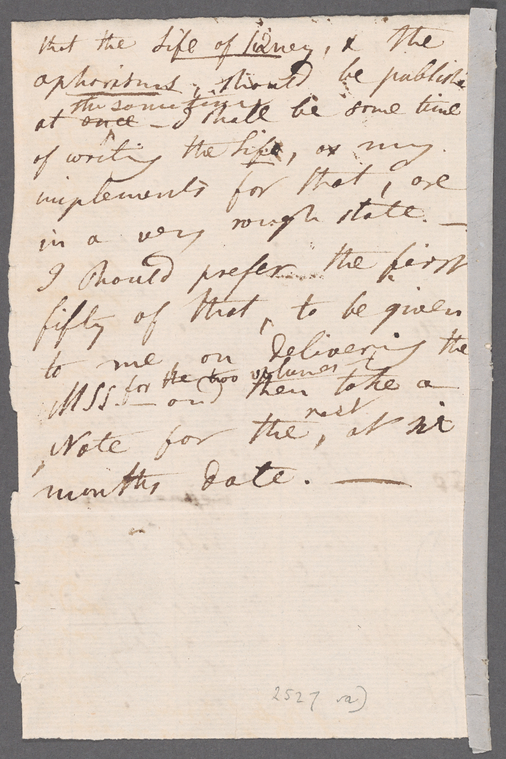 that the Life of Sidney, & the
aphorisms, should be publish
the same time
at once – I shall be some time
of writing the Life, as my
implements for that, are
in a very rough state. —
I should prefer the first
fifty of that, to be given
to me on delivering the
for the two volumes
MSS. — and then take a
rest
Note for the, at six
months date. —
2527